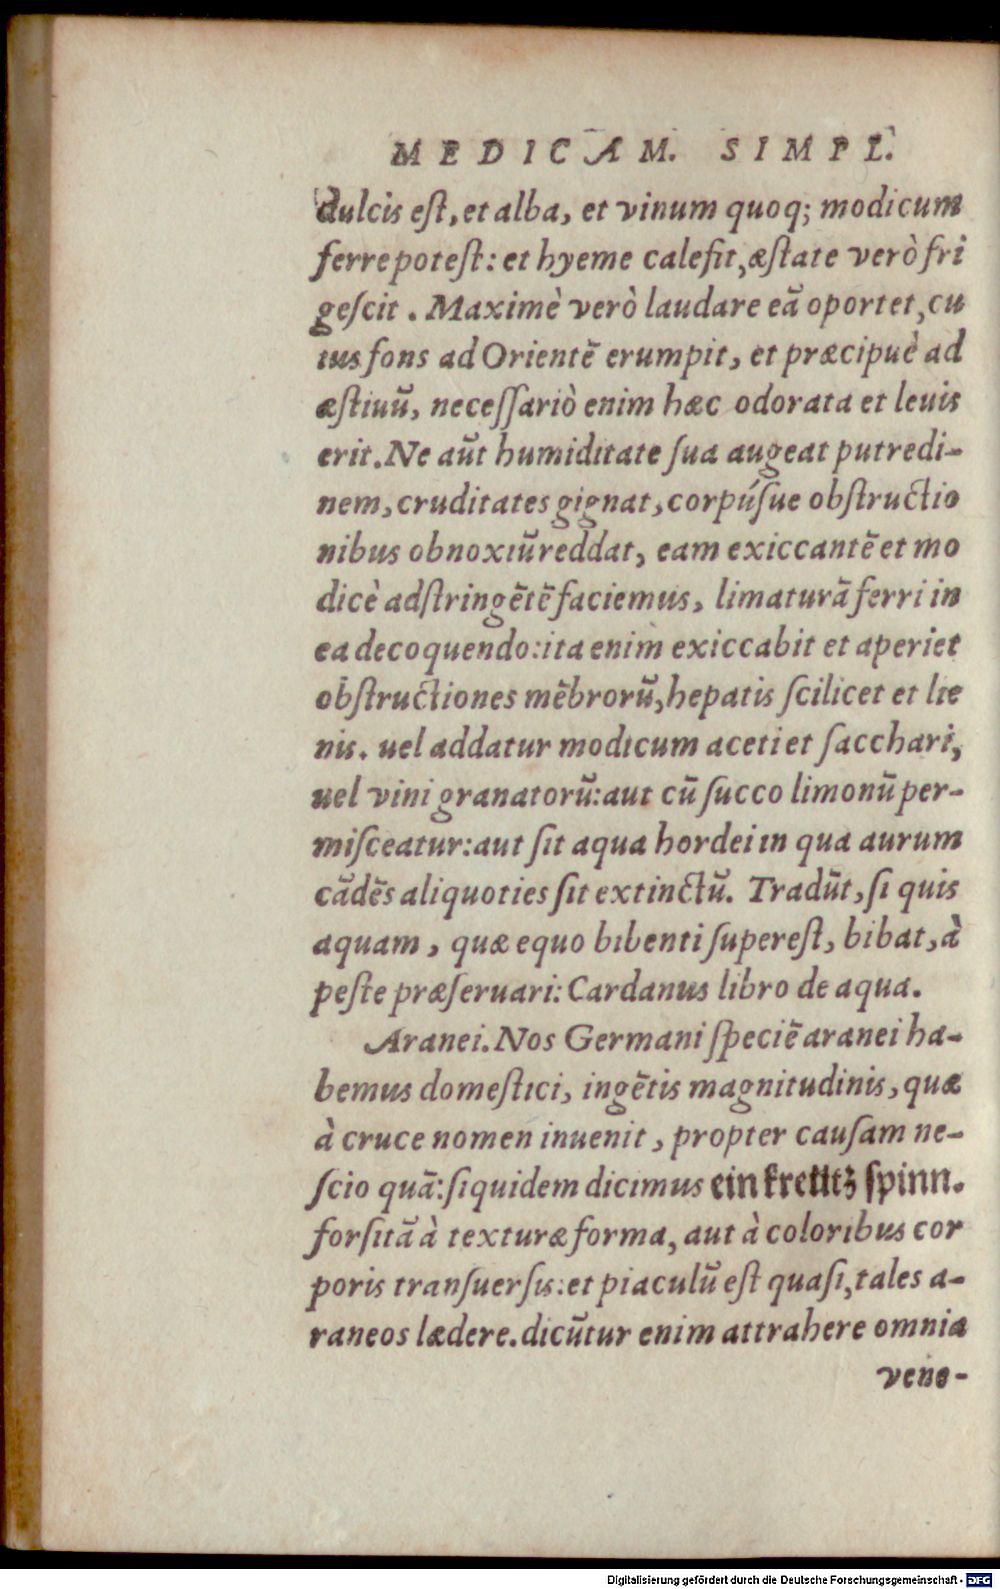 MEDICAM. SIMPL.
dulcis eſt, et alba, et vinum quoq; modicum
ferre poteſt: et hyeme calefit, æſtate verò fri
geſcit. Maximè verò laudare eã oportet, cu
ius fons ad Orientẽ erumpit, et præcipuè ad
æſtiuũ, neceſſariò enim hæc odorata et leuis
erit. Ne aũt humiditate ſua augeat putredi-
nem, cruditates gignat, corpúſue obſtructio
nibus obnoxiũ reddat, eam exiccantẽ et mo
dicè adſtringẽtẽ faciemus, limaturã ferri in
ea decoquendo: ita enim exiccabit et aperiet
obſtructiones mẽbrorũ, hepatis ſcilicet et lie
nis. uel addatur modicum aceti et ſacchari,
uel vini granatorũ: aut cũ ſucco limonũ per-
miſceatur: aut ſit aqua hordei in qua aurum
cãdẽs aliquoties ſit extinctũ. Tradũt, ſi quis
aquam, quæ equo bibenti ſupereſt, bibat, à
peſte præſeruari: Cardanus libro de aqua.
Aranei. Nos Germani ſpeciẽ aranei ha-
bemus domeſtici, ingẽtis magnitudinis, quæ
à cruce nomen inuenit, propter cauſam ne-
ſcio quã: ſiquidem dicimus ein kreütz ſpinn.
forſitã à texturæ forma, aut à coloribus cor
poris tranſuerſis: et piaculũ eſt quaſi, tales a-
raneos lædere. dicũtur enim attrahere omnia
vene-
Digitalisierung gefördert durch die Deutsche Forschungsgemeinschaft - DFG